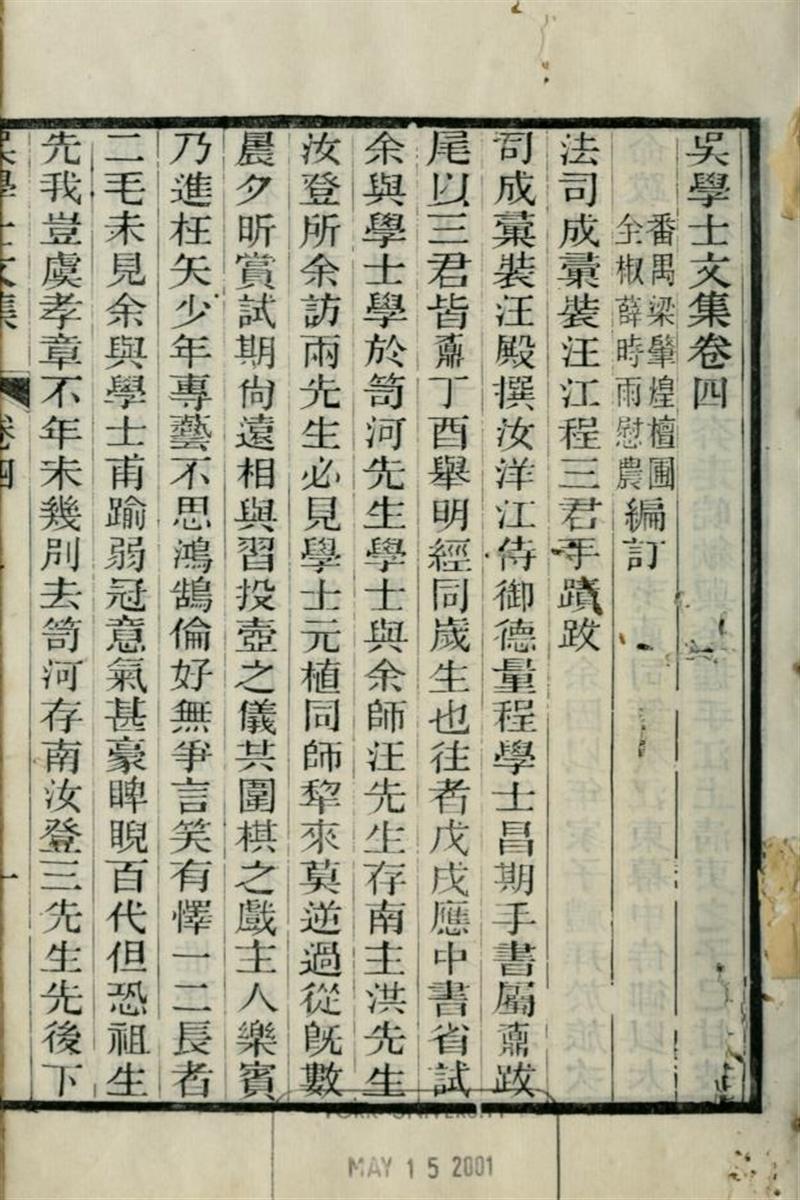 吳學士文集卷四
番禺梁肇煌檀圃
全椒薛時雨慰農
編訂
法司成彙裝汪江程三君手蹟跋
司成彙裝汪殿撰汝洋江侍御德量程學士昌期手書屬鼒跋
尾以三君皆鼒丁酉舉明經同歲生也往者戊戌應中書省試
余與學士學於笥河先生學士與余師汪先生存南主洪先生
汝登所余訪兩先生必見學士元植同師犂來莫逆過從既數
晨夕昕賞試期尙遠相與習投壺之儀共圍棋之戲主人樂賓
乃進枉矢少年專藝不思鴻鵠倫好無爭言笑有懌一二長者
二毛未見余與學士甫踰弱冠意氣甚豪睥睨百代但恐祖生
先我豈虞孝章不年未幾別去笥河存南汝登三先生先後下
吳學士文集
卷四
一
MAY 15 2001